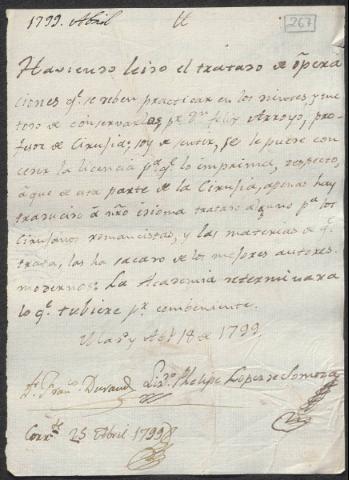 1799. Abril
267
Haviendo leido el tratado de opera
ciones qe. se deben practicar en los dientes, y me
todo de conservarlos pr. Dn. Felix Arroyo, pro-
fesor de Cirugia; soy de sentir, se le puede con
ceder la licencia pa. qe. lo imprima, respecto,
â que de esta parte de la Cirugia, apenas hay
traducido â nro. idioma tratado alguno pa. los
Cirujanos romancistas, y las materias de qe.
trata, las ha sacado de los mejores autores
modernos: La Academia determinara
lo qe. tubiere pr. combeniente.
Mad. y Abl. 18 de 1799.
Dr. Franco. Durand Licdo. Phelipe Lopez de Somoza
Corrte. 25 Abril 1799